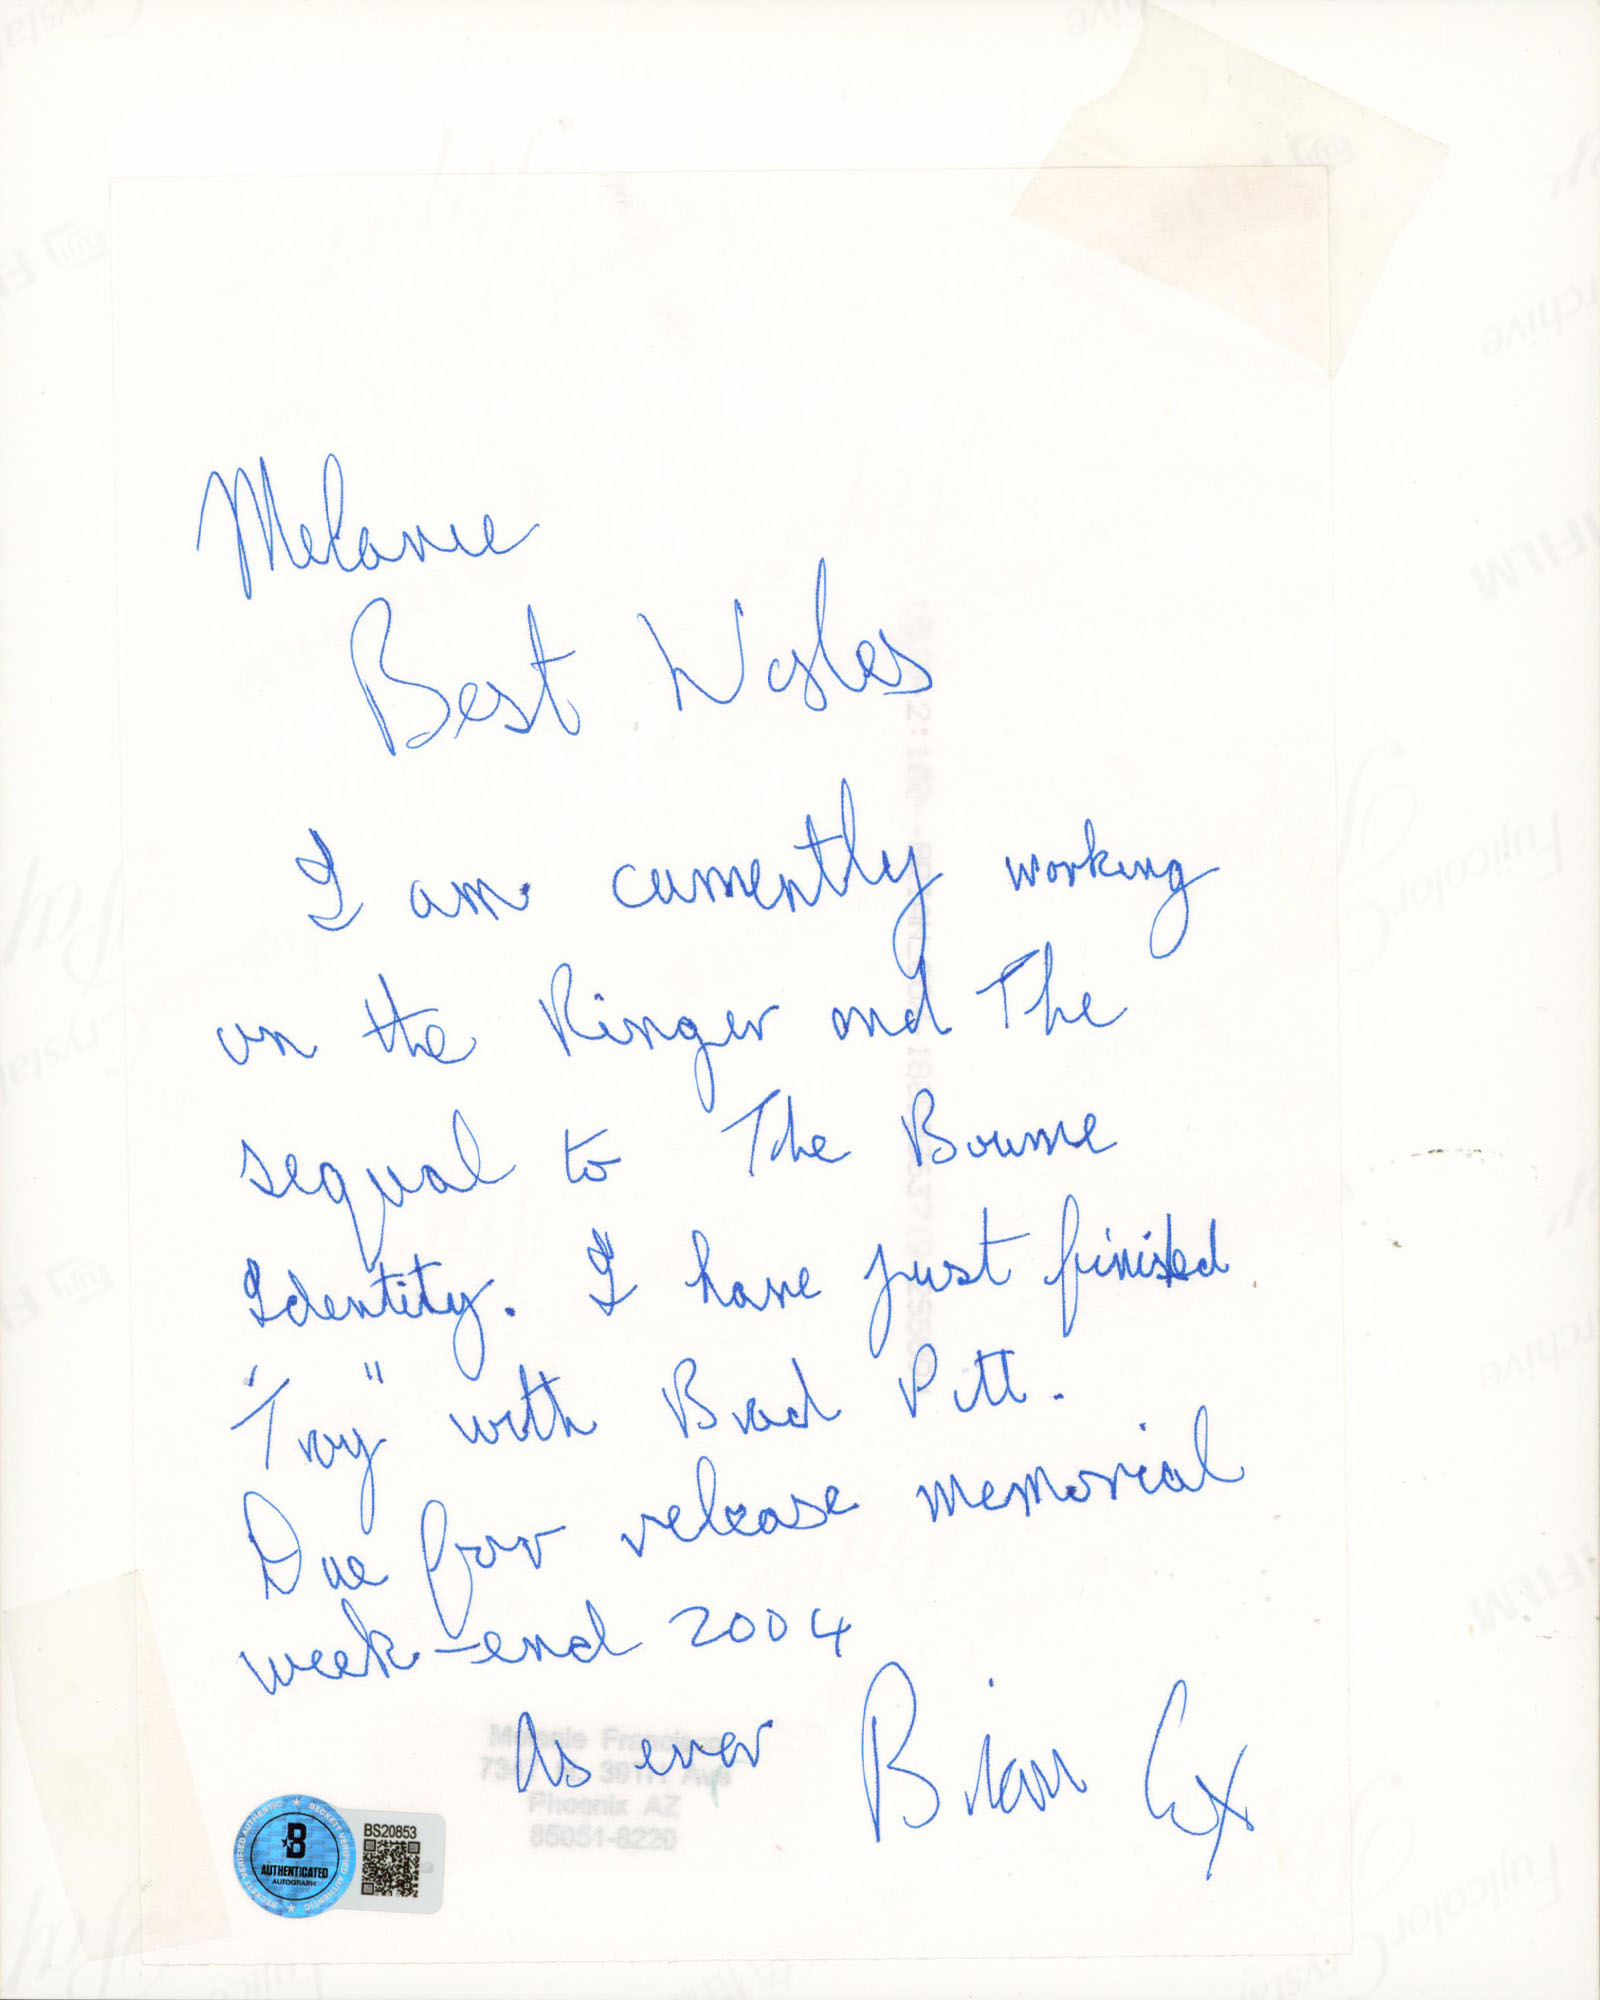 Melanie
Best Wishes
I am currently working
on the Ringer and The
sequal to The Bourne
Identity. I have just finished
"Troy" with Brad Pitt.
Due for release memorial
week-end 2004
As ever Brian Cox
Melanie Francisco
39TH Ave
Phoenix AZ
85051-8220
BECKETT VERIFIED AUTHENTIC
B
AUTHENTICATED
AUTOGRAPH
BS20853
Fujicolor
Crystal
Archive
FUJIFILM